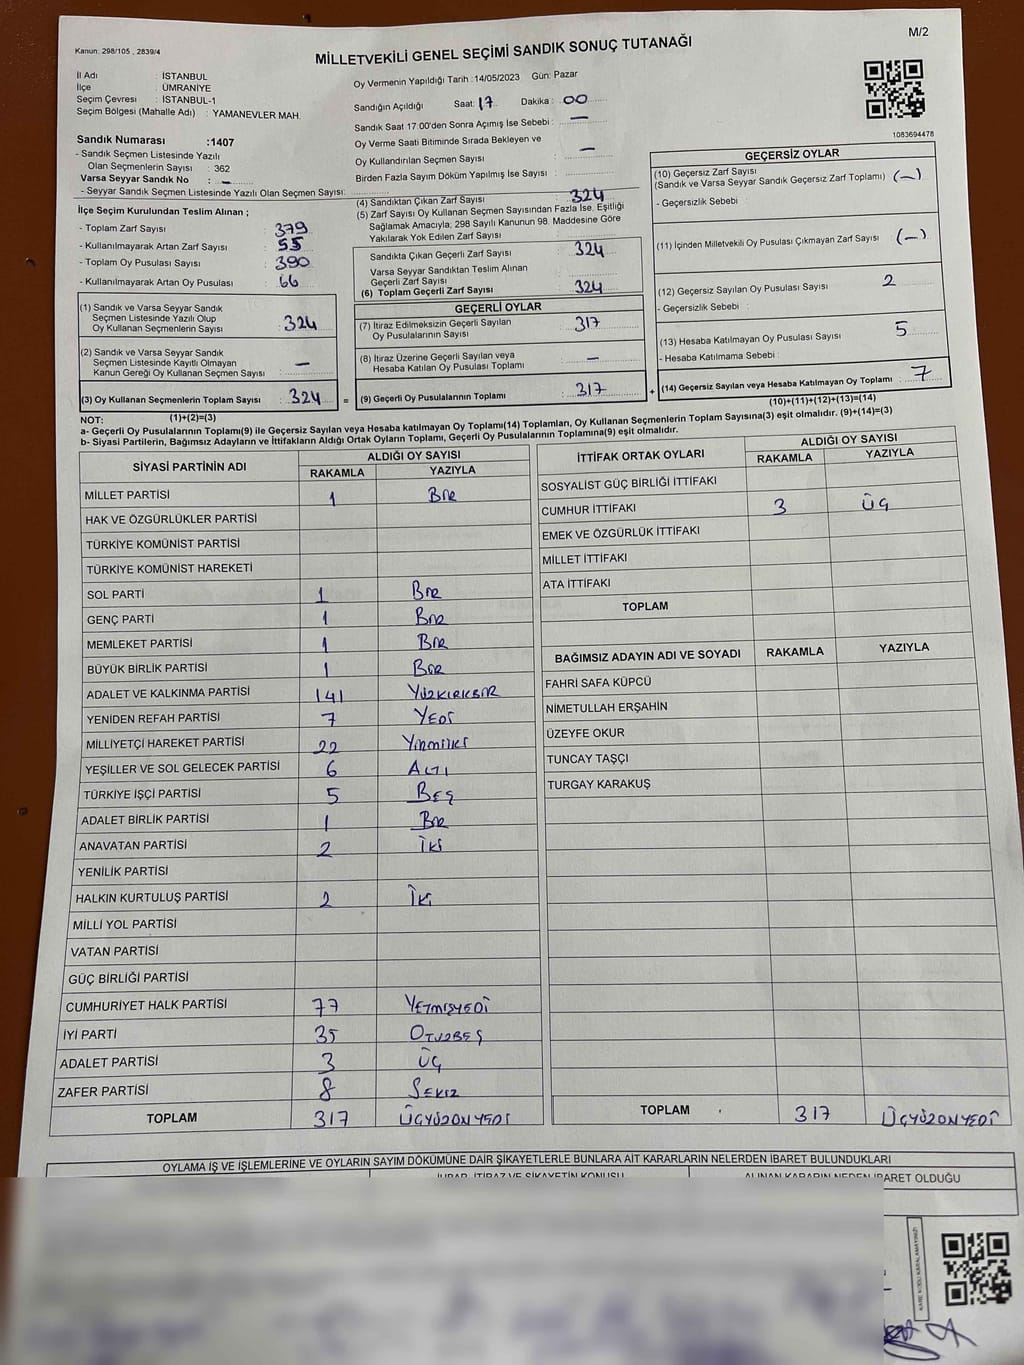 M/2
Kanun: 298/105 , 2839/4
MİLLETVEKİLİ GENEL SEÇİMİ SANDIK SONUÇ TUTANAĞI
İl Adı : İSTANBUL
İlçe : ÜMRANİYE
Seçim Çevresi : İSTANBUL-1
Seçim Bölgesi (Mahalle Adı) : YAMANEVLER MAH.
Sandık Numarası :1407
- Sandık Seçmen Listesinde Yazılı
Olan Seçmenlerin Sayısı : 362
Varsa Seyyar Sandık No : –
- Seyyar Sandık Seçmen Listesinde Yazılı Olan Seçmen Sayısı:
Oy Vermenin Yapıldığı Tarih :14/05/2023 Gün: Pazar
Sandığın Açıldığı Saat: 17 Dakika : 00
Sandık Saat 17:00'den Sonra Açımış İse Sebebi : –
Oy Verme Saati Bitiminde Sırada Bekleyen ve
Oy Kullandırılan Seçmen Sayısı : –
Birden Fazla Sayım Döküm Yapılmış İse Sayısı :
1083694478
İlçe Seçim Kurulundan Teslim Alınan ;
- Toplam Zarf Sayısı : 379
- Kullanılmayarak Artan Zarf Sayısı : 55
- Toplam Oy Pusulası Sayısı : 390
- Kullanılmayarak Artan Oy Pusulası : 66
(1) Sandık ve Varsa Seyyar Sandık
Seçmen Listesinde Yazılı Olup
Oy Kullanan Seçmenlerin Sayısı : 324
(2) Sandık ve Varsa Seyyar Sandık
Seçmen Listesinde Kayıtlı Olmayan
Kanun Gereği Oy Kullanan Seçmen Sayısı : –
(3) Oy Kullanan Seçmenlerin Toplam Sayısı : 324
(1)+(2)=(3)
(4) Sandıktan Çıkan Zarf Sayısı : 324
(5) Zarf Sayısı Oy Kullanan Seçmen Sayısından Fazla İse, Eşitliği
Sağlamak Amacıyla, 298 Sayılı Kanunun 98. Maddesine Göre
Yakılarak Yok Edilen Zarf Sayısı :
Sandıkta Çıkan Geçerli Zarf Sayısı : 324
Varsa Seyyar Sandıktan Teslim Alınan
Geçerli Zarf Sayısı :
(6) Toplam Geçerli Zarf Sayısı : 324
GEÇERLİ OYLAR
(7) İtiraz Edilmeksizin Geçerli Sayılan
Oy Pusulalarının Sayısı : 317
(8) İtiraz Üzerine Geçerli Sayılan veya
Hesaba Katılan Oy Pusulası Toplamı : –
= (9) Geçerli Oy Pusulalarının Toplamı : 317 +
GEÇERSİZ OYLAR
(10) Geçersiz Zarf Sayısı
(Sandık ve Varsa Seyyar Sandık Geçersiz Zarf Toplamı) (–)
- Geçersizlik Sebebi :
(11) İçinden Milletvekili Oy Pusulası Çıkmayan Zarf Sayısı (–)
(12) Geçersiz Sayılan Oy Pusulası Sayısı 2
- Geçersizlik Sebebi :
(13) Hesaba Katılmayan Oy Pusulası Sayısı 5
- Hesaba Katılmama Sebebi :
(14) Geçersiz Sayılan veya Hesaba Katılmayan Oy Toplamı : 7
(10)+(11)+(12)+(13)=(14)
NOT:
a- Geçerli Oy Pusulalarının Toplamı(9) ile Geçersiz Sayılan veya Hesaba katılmayan Oy Toplamı(14) Toplamları, Oy Kullanan Seçmenlerin Toplam Sayısına(3) eşit olmalıdır. (9)+(14)=(3)
b- Siyasi Partilerin, Bağımsız Adayların ve İttifakların Aldığı Ortak Oyların Toplamı, Geçerli Oy Pusulalarının Toplamına(9) eşit olmalıdır.
SİYASİ PARTİNİN ADI ALDIĞI OY SAYISI
RAKAMLA YAZIYLA
MİLLET PARTİSİ 1 Bir
HAK VE ÖZGÜRLÜKLER PARTİSİ
TÜRKİYE KOMÜNİST PARTİSİ
TÜRKİYE KOMÜNİST HAREKETİ
SOL PARTİ 1 Bir
GENÇ PARTİ 1 Bir
MEMLEKET PARTİSİ 1 Bir
BÜYÜK BİRLİK PARTİSİ 1 Bir
ADALET VE KALKINMA PARTİSİ 141 YÜZKIRKBİR
YENİDEN REFAH PARTİSİ 7 YEDİ
MİLLİYETÇİ HAREKET PARTİSİ 22 YİRMİİKİ
YEŞİLLER VE SOL GELECEK PARTİSİ 6 ALTI
TÜRKİYE İŞÇİ PARTİSİ 5 BEŞ
ADALET BİRLİK PARTİSİ 1 Bir
ANAVATAN PARTİSİ 2 İKİ
YENİLİK PARTİSİ
HALKIN KURTULUŞ PARTİSİ 2 İKİ
MİLLİ YOL PARTİSİ
VATAN PARTİSİ
GÜÇ BİRLİĞİ PARTİSİ
CUMHURİYET HALK PARTİSİ 77 YETMİŞYEDİ
İYİ PARTİ 35 OTUZBEŞ
ADALET PARTİSİ 3 ÜÇ
ZAFER PARTİSİ 8 SEKİZ
TOPLAM 317 ÜÇYÜZONYEDİ
İTTİFAK ORTAK OYLARI ALDIĞI OY SAYISI
RAKAMLA YAZIYLA
SOSYALİST GÜÇ BİRLİĞİ İTTİFAKI
CUMHUR İTTİFAKI 3 ÜÇ
EMEK VE ÖZGÜRLÜK İTTİFAKI
MİLLET İTTİFAKI
ATA İTTİFAKI
TOPLAM
BAĞIMSIZ ADAYIN ADI VE SOYADI RAKAMLA YAZIYLA
FAHRİ SAFA KÜPCÜ
NİMETULLAH ERŞAHİN
ÜZEYFE OKUR
TUNCAY TAŞÇI
TURGAY KARAKUŞ
TOPLAM 317 ÜÇYÜZONYEDİ
OYLAMA İŞ VE İŞLEMLERİNE VE OYLARIN SAYIM DÖKÜMÜNE DAİR ŞİKAYETLERLE BUNLARA AİT KARARLARIN NELERDEN İBARET BULUNDUKLARI
İHBAR, İTİRAZ VE ŞİKAYETİN KONUSU ALINAN KARARIN NEDEN İBARET OLDUĞU
KARE KODU KARALAMAYINIZ!